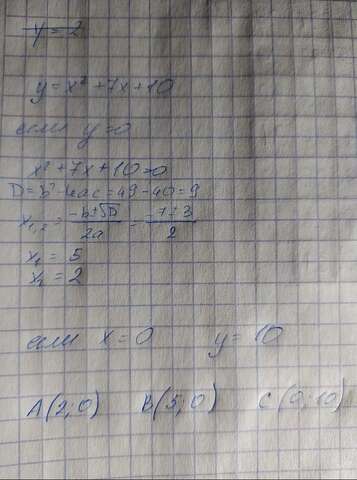 y = 2
y = x² + 7x + 10
если y = 0
x² + 7x + 10 = 0
D = b² - 4ac = 49 - 40 = 9
x₁,₂ = (-b ± √D)/2a = (-7 ± 3)/2
x₁ = 5
x₂ = 2
если x = 0 y = 10
A(2; 0) B(5; 0) C(0; 10)